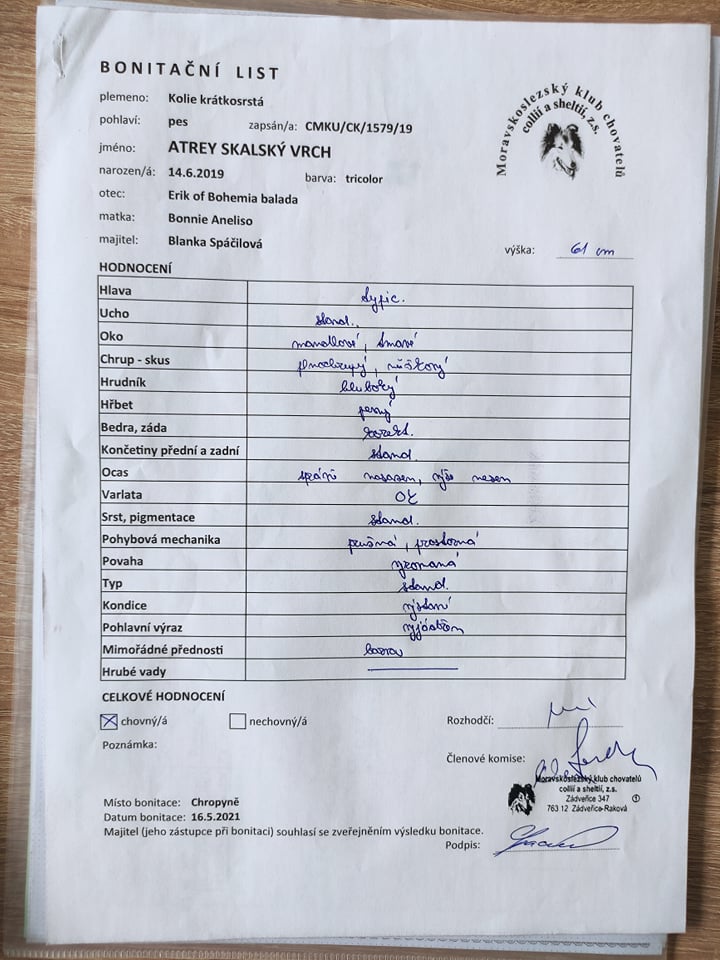 BONITAČNÍ LIST
plemeno: Kolie krátkosrstá
pohlaví: pes zapsán/a: CMKU/CK/1579/19
jméno: ATREY SKALSKÝ VRCH
narozen/á: 14.6.2019 barva: tricolor
otec: Erik of Bohemia balada
matka: Bonnie Aneliso
majitel: Blanka Spáčilová
Moravskoslezský klub chovatelů
collií a sheltií, z.s.
výška: 61 cm
HODNOCENÍ
Hlava typic.
Ucho stand.
Oko mandlové, tmavé
Chrup - skus plnochrupý, nůžkový
Hrudník hluboký
Hřbet pevný
Bedra, záda korekt.
Končetiny přední a zadní stand.
Ocas správně nasazen, výše nesen
Varlata OK
Srst, pigmentace stand.
Pohybová mechanika pružná, prostorná
Povaha vyrovnaná
Typ stand.
Kondice výstavní
Pohlavní výraz vyjádřen
Mimořádné přednosti barva
Hrubé vady
CELKOVÉ HODNOCENÍ
chovný/á nechovný/á
Rozhodčí:
Poznámka:
Členové komise:
Moravskoslezský klub chovatelů
collií a sheltií, z.s.
Zádveřice 347 1
763 12 Zádveřice-Raková
Místo bonitace: Chropyně
Datum bonitace: 16.5.2021
Majitel (jeho zástupce při bonitaci) souhlasí se zveřejněním výsledku bonitace.
Podpis: